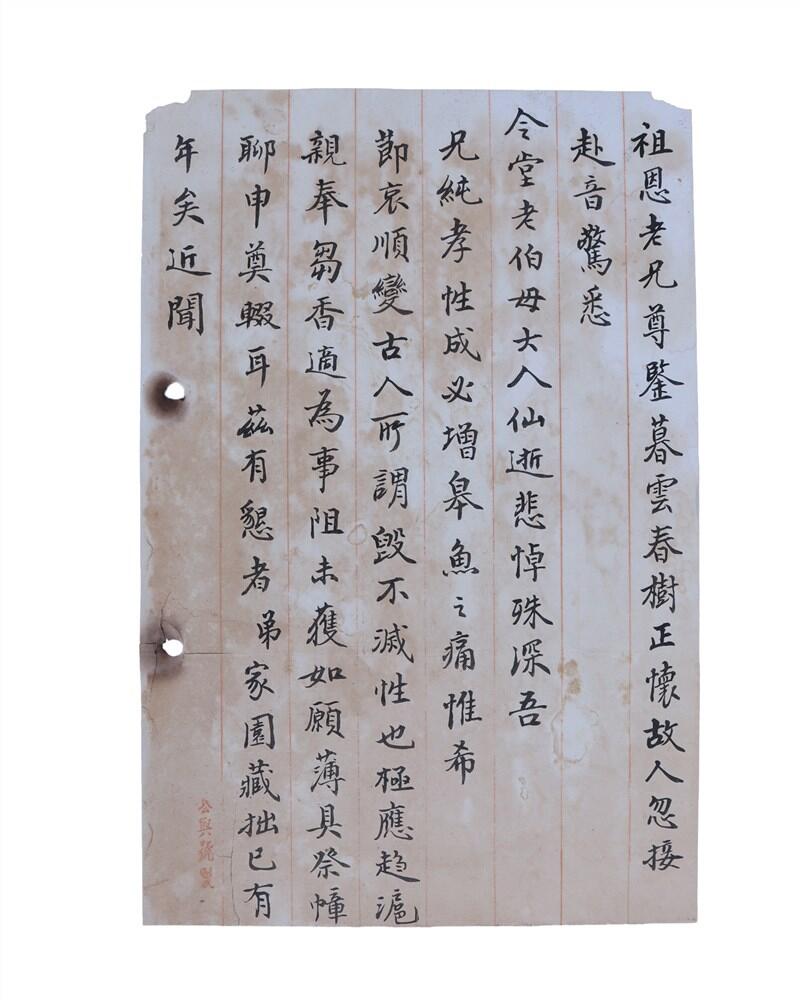 祖恩老兄尊鑒暮雲春樹正懷故人忽接
赴音驚悉
令堂老伯母大人仙逝悲悼殊深吾
兄純孝性成必增皋魚之痛惟希
節哀順變古人所謂毀不滅性也極應趋滬
親奉芻香適為事阻未獲如願薄具祭幛
聊申奠輟耳茲有懇者弟家園藏拙已有
年矣近聞
公興號製